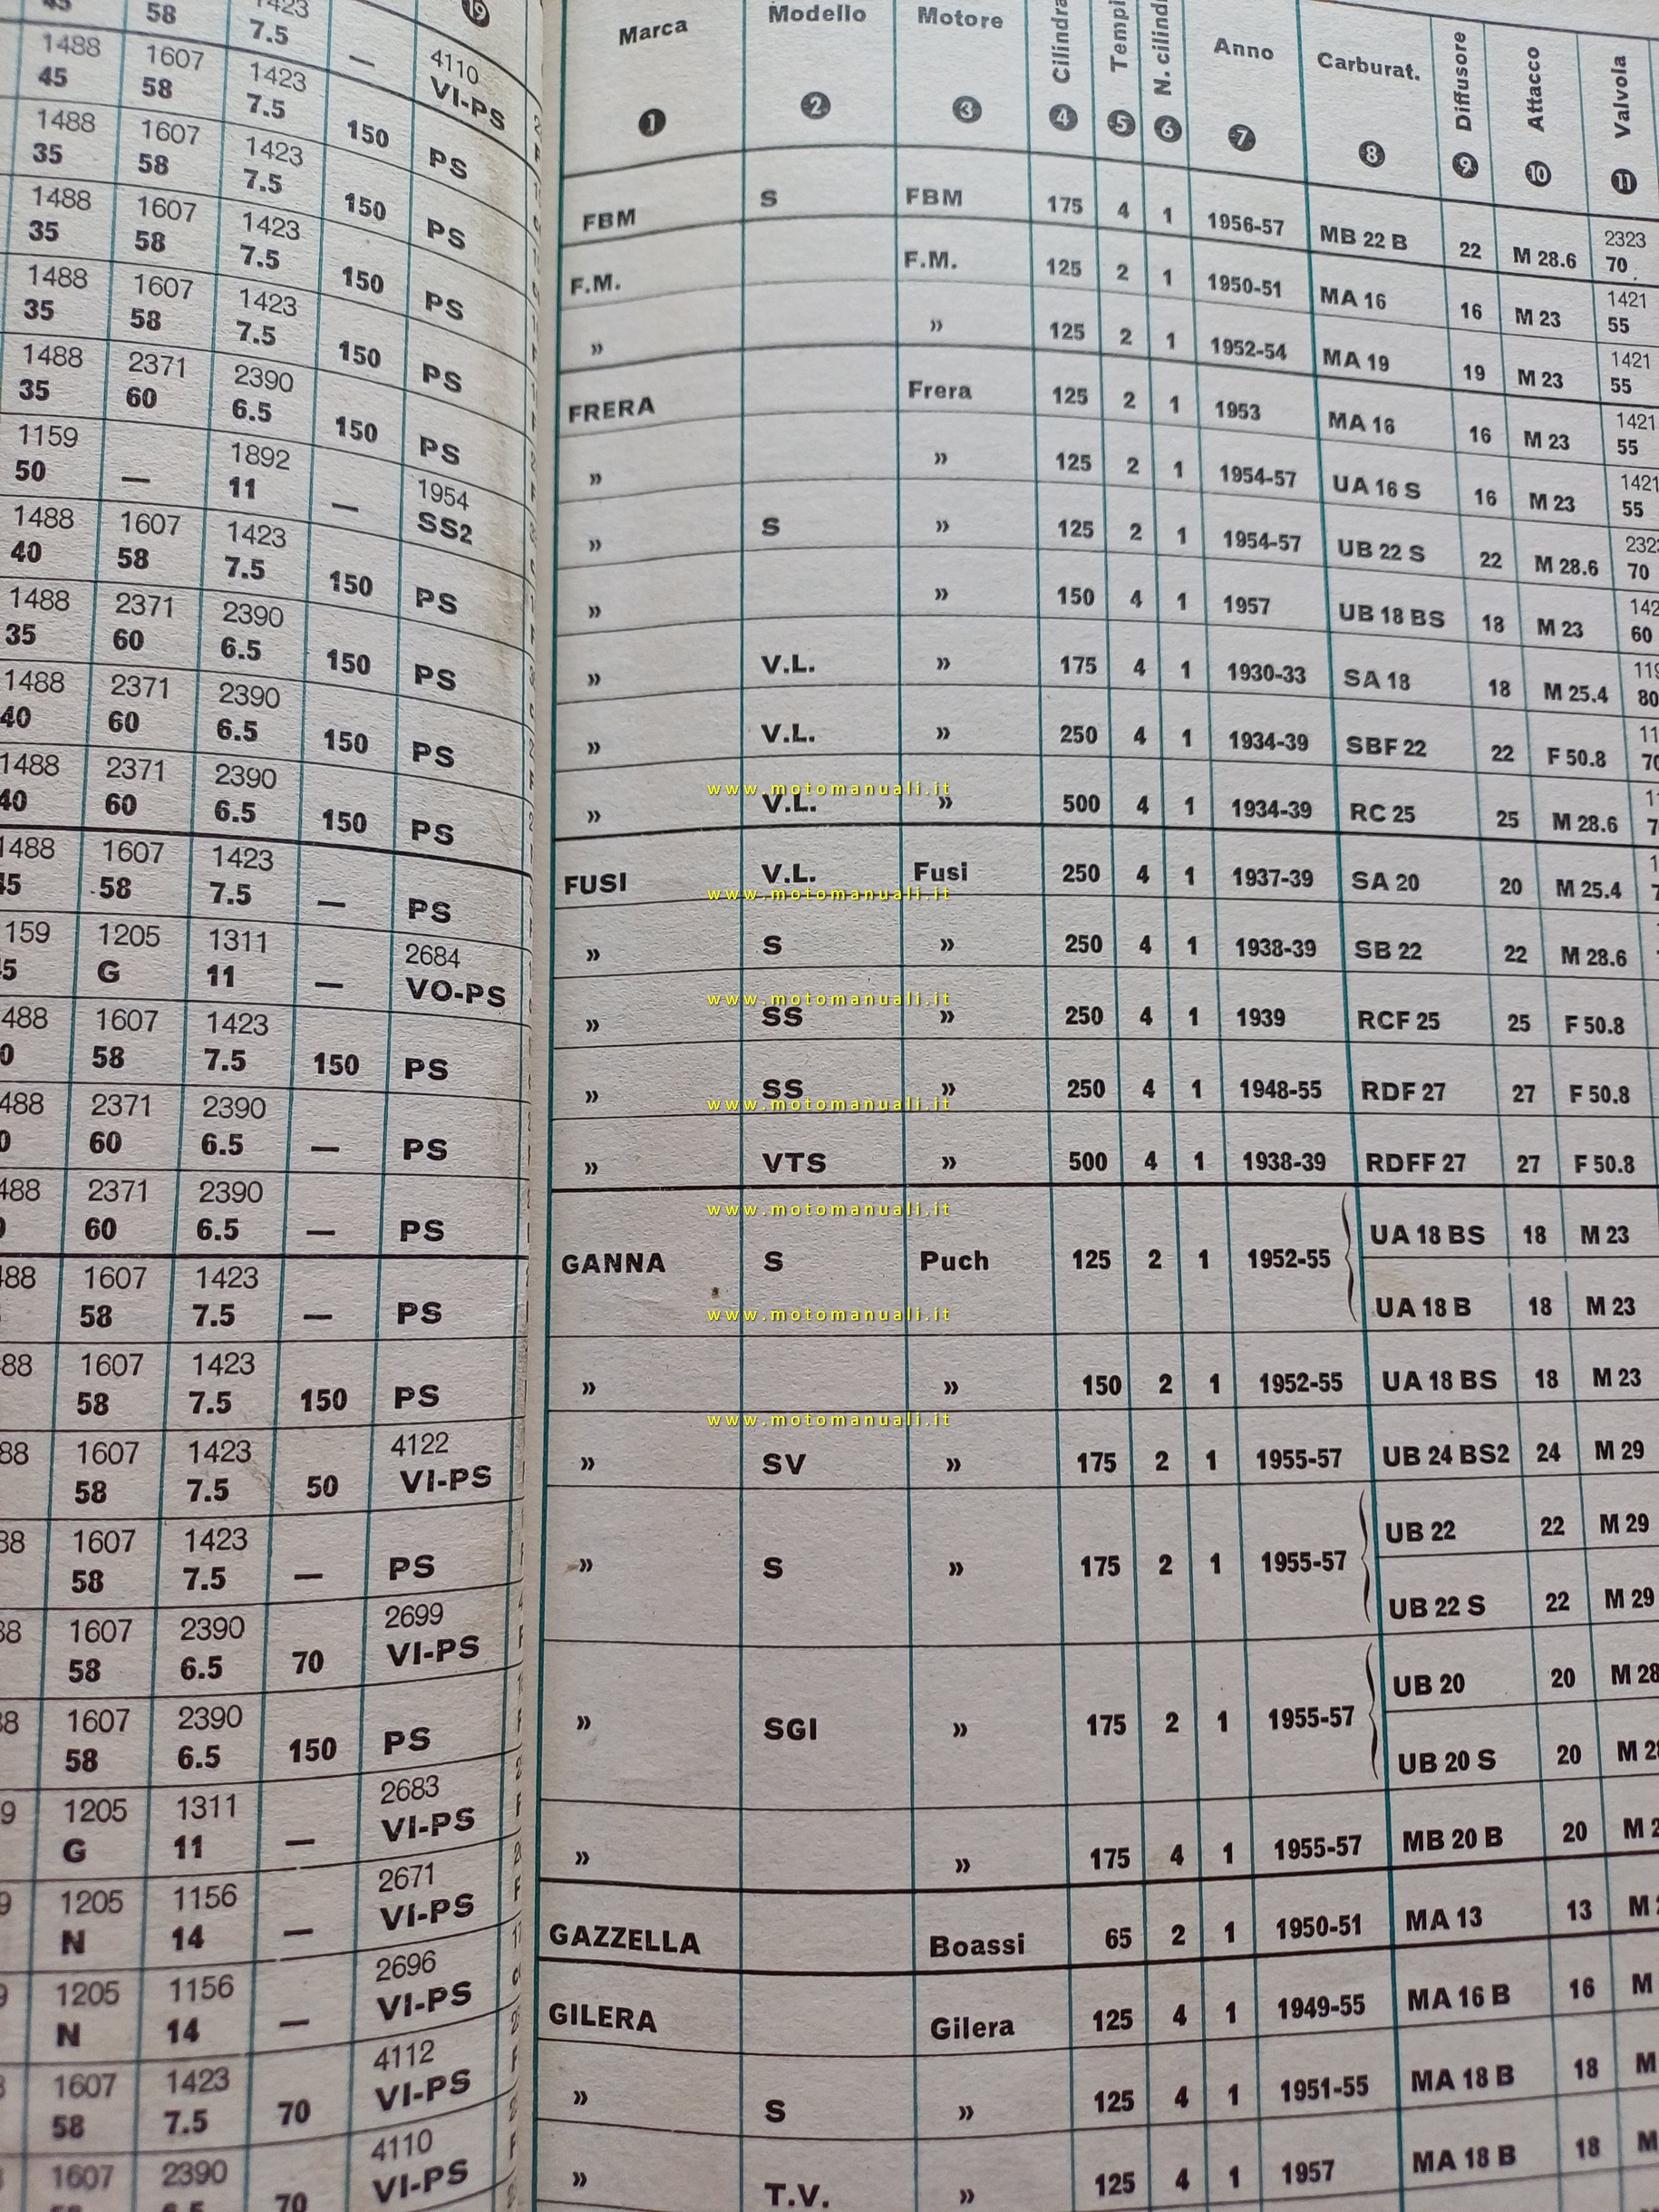 45 58 1423 7.5 — 19
1488 45 1607 58 1423 7.5 150 4110 VI-PS
1488 35 1607 58 1423 7.5 150 PS
1488 35 1607 58 1423 7.5 150 PS
1488 35 1607 58 1423 7.5 150 PS
1488 35 2371 60 2390 6.5 150 PS
1159 50 — 1892 11 — 1954 SS2
1488 40 1607 58 1423 7.5 150 PS
1488 35 2371 60 2390 6.5 150 PS
1488 40 2371 60 2390 6.5 150 PS
1488 40 2371 60 2390 6.5 150 PS
1607 58 1423 7.5 — PS
1205 G 1311 11 — 2684 VO-PS
1607 58 1423 7.5 150 PS
2371 60 2390 6.5 — PS
2371 60 2390 6.5 — PS
1607 58 1423 7.5 — PS
1607 58 1423 7.5 150 PS
1607 58 1423 7.5 50 4122 VI-PS
1607 58 1423 7.5 — PS
1607 58 2390 6.5 70 2699 VI-PS
1607 58 2390 6.5 150 PS
1205 G 1311 11 — 2683 VI-PS
1205 N 1156 14 — 2671 VI-PS
1205 N 1156 14 — 2696 VI-PS
1607 58 1423 7.5 70 4112 VI-PS
1607 2390 70 4110 VI-PS
Marca Modello Motore Cilindra Tempi N. cilind Anno Carburat. Diffusore Attacco Valvola
1 2 3 4 5 6 7 8 9 10 11
FBM S FBM 175 4 1 1956-57 MB 22 B 22 M 28.6 2323 70
F.M. F.M. 125 2 1 1950-51 MA 16 16 M 23 1421 55
» » 125 2 1 1952-54 MA 19 19 M 23 1421 55
FRERA Frera 125 2 1 1953 MA 16 16 M 23 1421 55
» » 125 2 1 1954-57 UA 16 S 16 M 23 1421 55
» S » 125 2 1 1954-57 UB 22 S 22 M 28.6 70
» » 150 4 1 1957 UB 18 BS 18 M 23 60
» V.L. » 175 4 1 1930-33 SA 18 18 M 25.4 80
» V.L. » 250 4 1 1934-39 SBF 22 22 F 50.8
www.motomanuali.it
» V.L. » 500 4 1 1934-39 RC 25 25 M 28.6
FUSI V.L. Fusi 250 4 1 1937-39 SA 20 20 M 25.4
www.motomanuali.it
» S » 250 4 1 1938-39 SB 22 22 M 28.6
www.motomanuali.it
» SS » 250 4 1 1939 RCF 25 25 F 50.8
» SS » 250 4 1 1948-55 RDF 27 27 F 50.8
www.motomanuali.it
» VTS » 500 4 1 1938-39 RDFF 27 27 F 50.8
www.motomanuali.it
GANNA S Puch 125 2 1 1952-55 UA 18 BS 18 M 23
UA 18 B 18 M 23
www.motomanuali.it
» » 150 2 1 1952-55 UA 18 BS 18 M 23
www.motomanuali.it
» SV » 175 2 1 1955-57 UB 24 BS2 24 M 29
» S » 175 2 1 1955-57 UB 22 22 M 29
UB 22 S 22 M 29
» SGI » 175 2 1 1955-57 UB 20 20 M 28
UB 20 S 20 M 28
» » 175 4 1 1955-57 MB 20 B 20 M 2
GAZZELLA Boassi 65 2 1 1950-51 MA 13 13 M
GILERA Gilera 125 4 1 1949-55 MA 16 B 16 M
» S » 125 4 1 1951-55 MA 18 B 18 M
» T.V. » 125 4 1 1957 MA 18 B 18 M